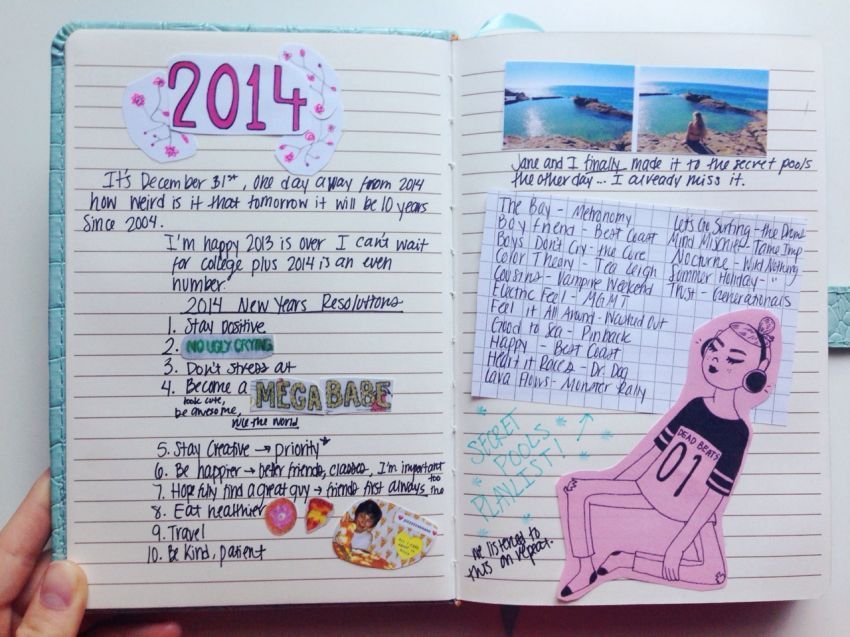 2014
It's December 31st, one day away from 2014
how weird is it that tomorrow it will be 10 years
since 2004.
I'm happy 2013 is over I can't wait
for college plus 2014 is an even
number.
2014 New Years Resolutions
1. Stay positive
2. NO UGLY CRYING
3. Don't stress out
4. Become a MEGA BABE
look cute,
be awesome,
rule the world
5. Stay Creative → priority*
6. Be happier → better friends, classes, I'm important too
7. Hopefully find a great guy → friends first always tho
8. Eat healthier
9. Travel
10. Be kind, patient
Jane and I finally made it to the secret pools
the other day... I already miss it.
The Bay - Metronomy
Boyfriend - Best Coast
Boys Don't Cry - the Cure
Color Theory - Tea Leigh
Cousins - Vampire Weekend
Electric Feel - MGMT
Feel it All Around - Washed Out
Good to Sea - Pinback
Happy - Best Coast
Heart it Races - Dr. Dog
Lava Flows - Monster Rally
Lets Go Surfing - the Drums
Mind Mischief - Tame Imp
Nocturne - Wild Nothing
Summer Holiday - "
Trust - Generationals
SECRET
POOLS
PLAYLIST!
we listened to
this on repeat.
DEAD BEATS
01